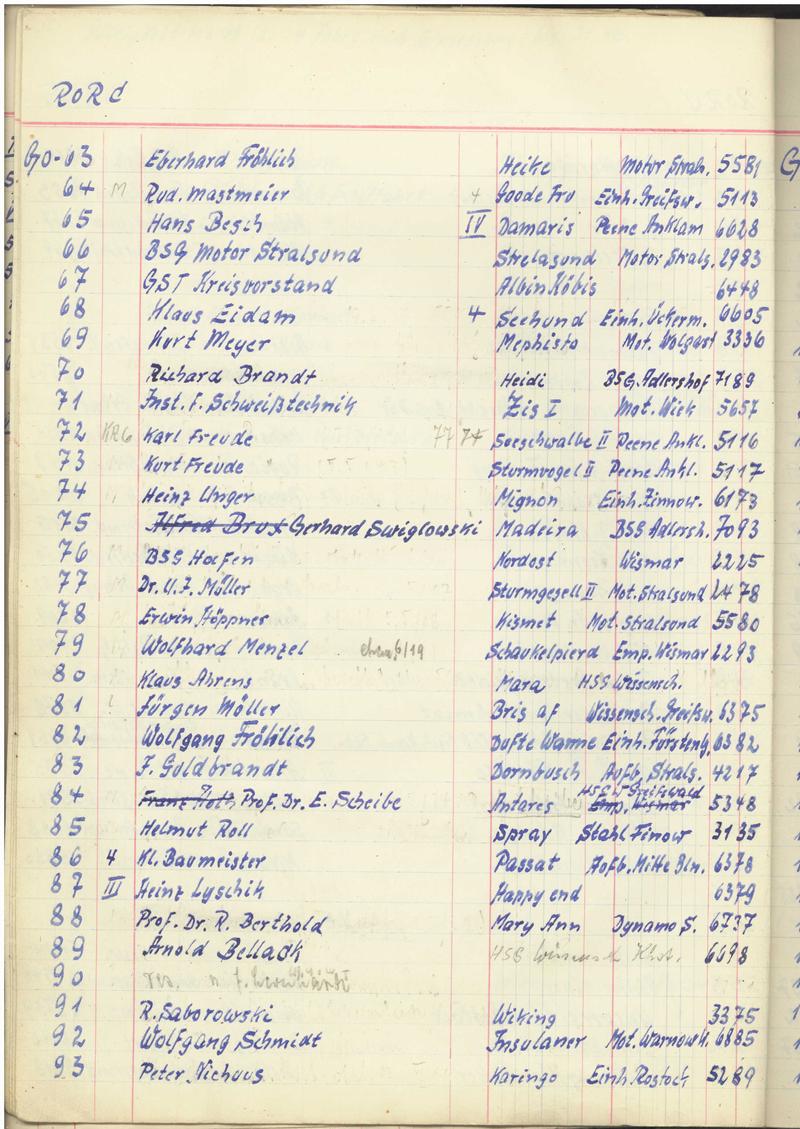 RORC
GO-63 Eberhard Fröhlich Heike Motor Strals. 5581
64 M Rud. Mastmeier 4 Goode Fru Einh. Greifsw. 5113
65 Hans Besch IV Damaris Peene Anklam 6628
66 BSG Motor Stralsund Strelasund Motor Strals. 2983
67 GST Kreisvorstand Albin Köbis 6448
68 Klaus Eidam 4 Seehund Einh. Ückerm. 6605
69 Kurt Meyer Mephisto Mot. Wolgast 3336
70 Richard Brandt Heidi BSG. Adlershof 7189
71 Inst. f. Schweißtechnik Zis I Mot. Wiek 5657
72 KR6 Karl Freude 77 74 Seeschwalbe II Peene Ankl. 5116
73 Kurt Freude Sturmvogel II Peene Ankl. 5117
74 Heinz Unger Mignon Einh. Zinnow. 6173
75 Alfred Brux Gerhard Swiglowski Madeira BSG Adlersh. 7093
76 BSG Hafen Nordost Wismar 2225
77 Dr. U. J. Müller Sturmgesell II Mot. Stralsund 2478
78 Erwin Höppner Kismet Mot. Stralsund 5580
79 Wolfhard Menzel 6/19 Schaukelpierd Emp. Wismar 2293
80 Klaus Ahrens Mara HSG Wissensch.
81 Jürgen Möller Bris af Wissensch. Greifsw. 6375
82 Wolfgang Fröhlich Dufte Wanne Einh. Fürstenb. 6382
83 F. Guldbrandt Dornbusch Aufb. Strals. 4217
84 Franz Roth Prof. Dr. E. Scheibe Antares Emp. Wismar HSG W Greifswald 5348
85 Helmut Roll Spray Stahl Finow 3135
86 4 Kl. Baumeister Passat Aofb. Mitte Bln. 6378
87 III Heinz Lyschik Happy end 6379
88 Prof. Dr. R. Berthold Mary Ann Dynamo S. 6737
89 Arnold Bellack HSG Wissensch 6698
90 res.
91 R. Saborowski Wiking 3375
92 Wolfgang Schmidt Insulaner Mot. Warnowk. 6885
93 Peter Nichuus Karingo Einh Rostock 5289